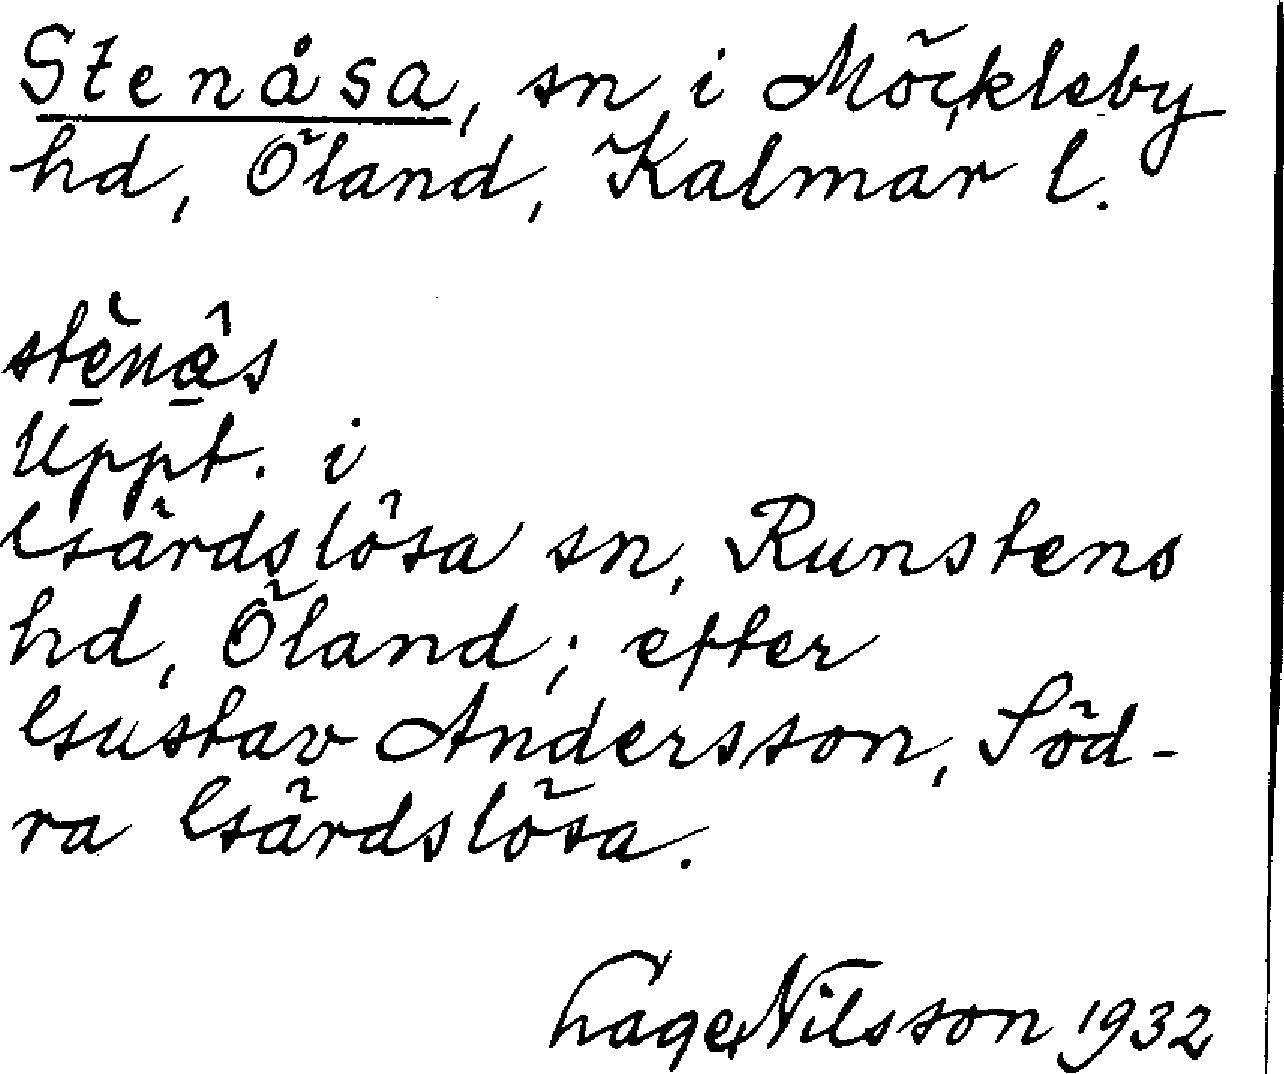 Stenåsa, sn i Möckleby
hd, Öland, Kalmar l.
Uppt. i
Gärdslösa sn, Runstens
hd, Öland; efter
Gustav Andersson, Söd-
ra Gärdslösa.
Nilsson 1932